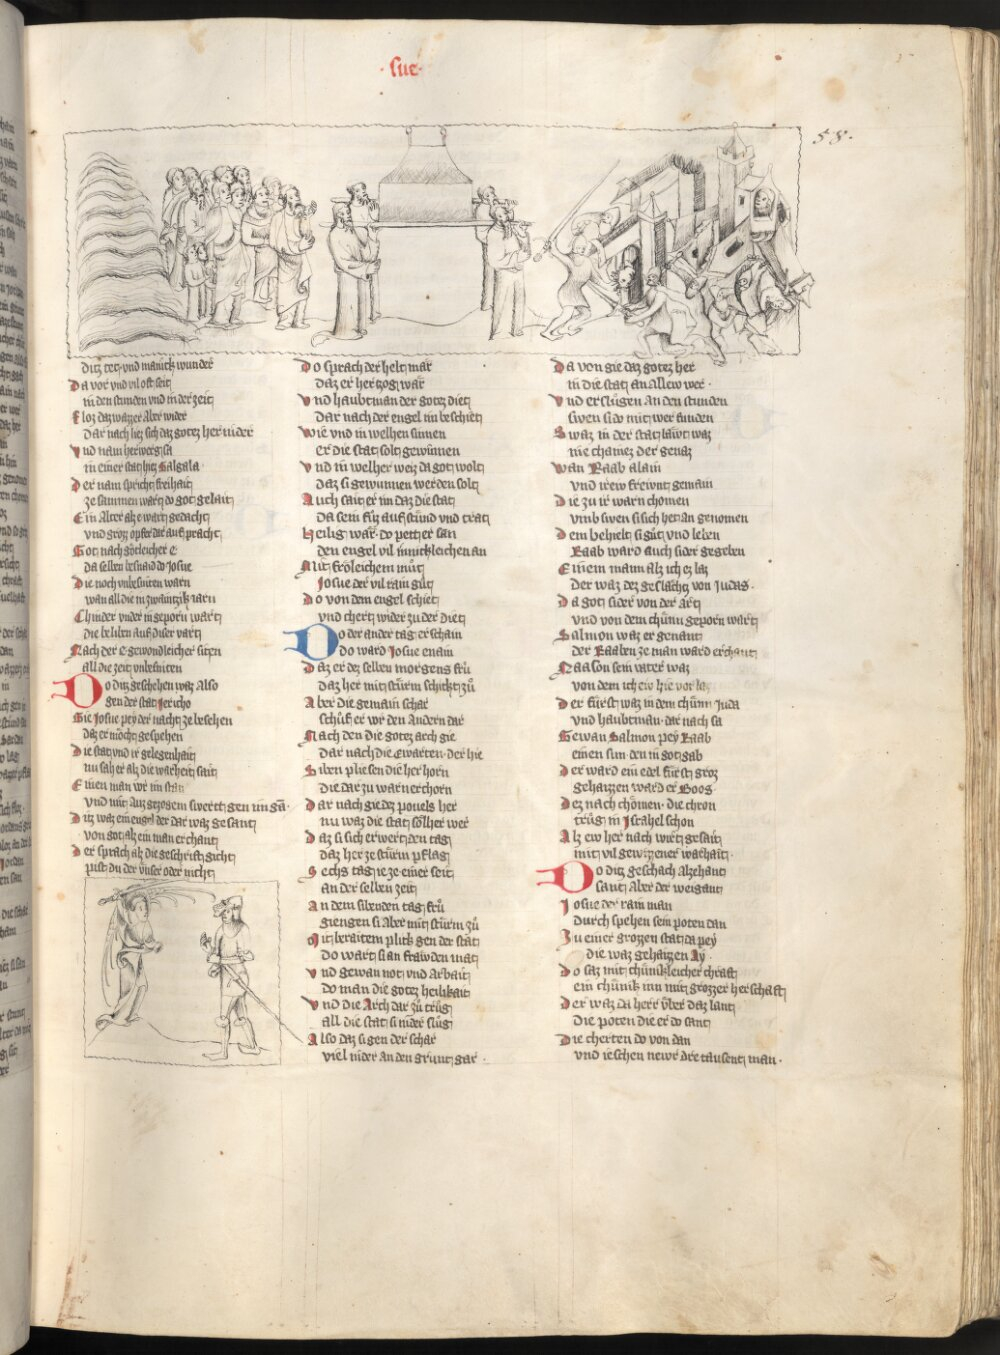 ·sue·
58·
ditz tet· vnd manick wunder
Da vor vnd vil oft seit
in den stunden vnd in der zeit
floz daz wazzer Aber wider
Dar nach liez sich daz gotez her nider
Vnd nam herwerg sa
in einer stat hiez Galgala·
Der nam spricht freihait
ze sammen wart do got gelait
Ein Alter alz e wart gedacht
vnd groz opfer dar auf pracht
Got nach götleicher e
da selben besnaid do Josue
Die noch vnbesniten warn
wan all die in zwaintzik iarn
Chinder vnder in geporn wart
die beliben auf diser vart
Nach der e gewondleicher siten
all die zeit vnbesniten
Do ditz geschehen waz Also
gen der stat Jericho
Gie Josue pey der nacht ze besehen
daz er möcht gespehen
Die stat vnd ir gelegenhait
nu sah er alz die warheit sait
Einen man vor im stan
Vnd mit auz gezogem swert gen im gan·
Ditz waz ein engel der dar waz gesant
von got alz ein man erchant
Der sprach alz die geschrift gicht
pist du der vnser oder nicht
Do sprach der helt mär
daz er hertzog wär
Vnd haubtman der gotez diet
Dar nach der engel im beschiet
Wie vnd in welhen sinnen
er die stat solt gewinnen
Vnd in welher weiz da got wolt
daz si gewunnen werden solt
Auch sait er im daz die stat
da sein fuz auf stund vnd trat
Heilig wär· do pett er san
den engel vil innickleichen an
Mit fröleichem mut
Josue der vil rain gut
Do von dem engel schiet
vnd chert wider zu der diet
Do der ander tag erschain
do ward Josue enain
Daz er dez selben morgens fru
daz her mit sturm schickt zu
Aber die gemain schar
schuf er vor den Andern dar
Nach den die gotez arch gie
dar nach die ewarten· der hie
Siben pliesen die her horn
die dar zu warn erchorn
Dar nach gie dez pouels her
nu waz die stat solher wer
Daz si sich erwert den tag
daz her ze sturm pflag
Sechs tag ie ze einer seit
an der selben zeit
An dem sibenden tag fru
giengen si Aber mit sturm zu
Mit beraitem plick gen der stat
do wart si an frawden mat
Vnd gewan not vnd Arbait
do man die gotez heilikait
Vnd die Arch dar zu trug
all die stat si nider slug
Also daz si gen der schar
viel nider an den grunt gar·
Da von gie daz gotez her
in die stat an allew wer·
Vnd erslugen an den stunden
swen si do mit wer funden
Swaz in der stat lawt waz
nie chainez der genaz
Wan Raab alain
vnd irew frewnt gemain
Die zu ir warn chomen
vmb swen si sich het an genomen
Dem behielt si gut vnd leben
Raab ward auch sider gegeben
Einem mann alz ich ez laz
der waz dez geslächt von Judas·
Da got sider von der art
vnd von dem chunn geporn wart
Salmon waz er genant
der Raaben ze man ward erchant
Naason sein vater waz
von dem ich ew hie vor laz
Der furst waz in dem chunn Juda
vnd haubtman· dar nach sa
Gewan Salmon pey Raab
einen sun· den in got gab
Der ward ein edel furst groz
gehaizzen ward er Boos·
Dez nach chömen· die chron
trug in Israhel schon
Alz ew her nach wirt gesait
mit vil gewizzener warhait·
Do ditz geschach Alzehant
sant Aber der weigant
Josue der rain man
durch spehen sein poten dan
In einer grozzen stat da pey
die waz gehaizzen Ay·
Do saz mit chunikleicher chraft
ein chunik inn mit grozzer herschaft
Der waz da herr vber daz lant
die poten die er do sant
Die cherten do von dan
vnd ieschen newr dre tausent man·